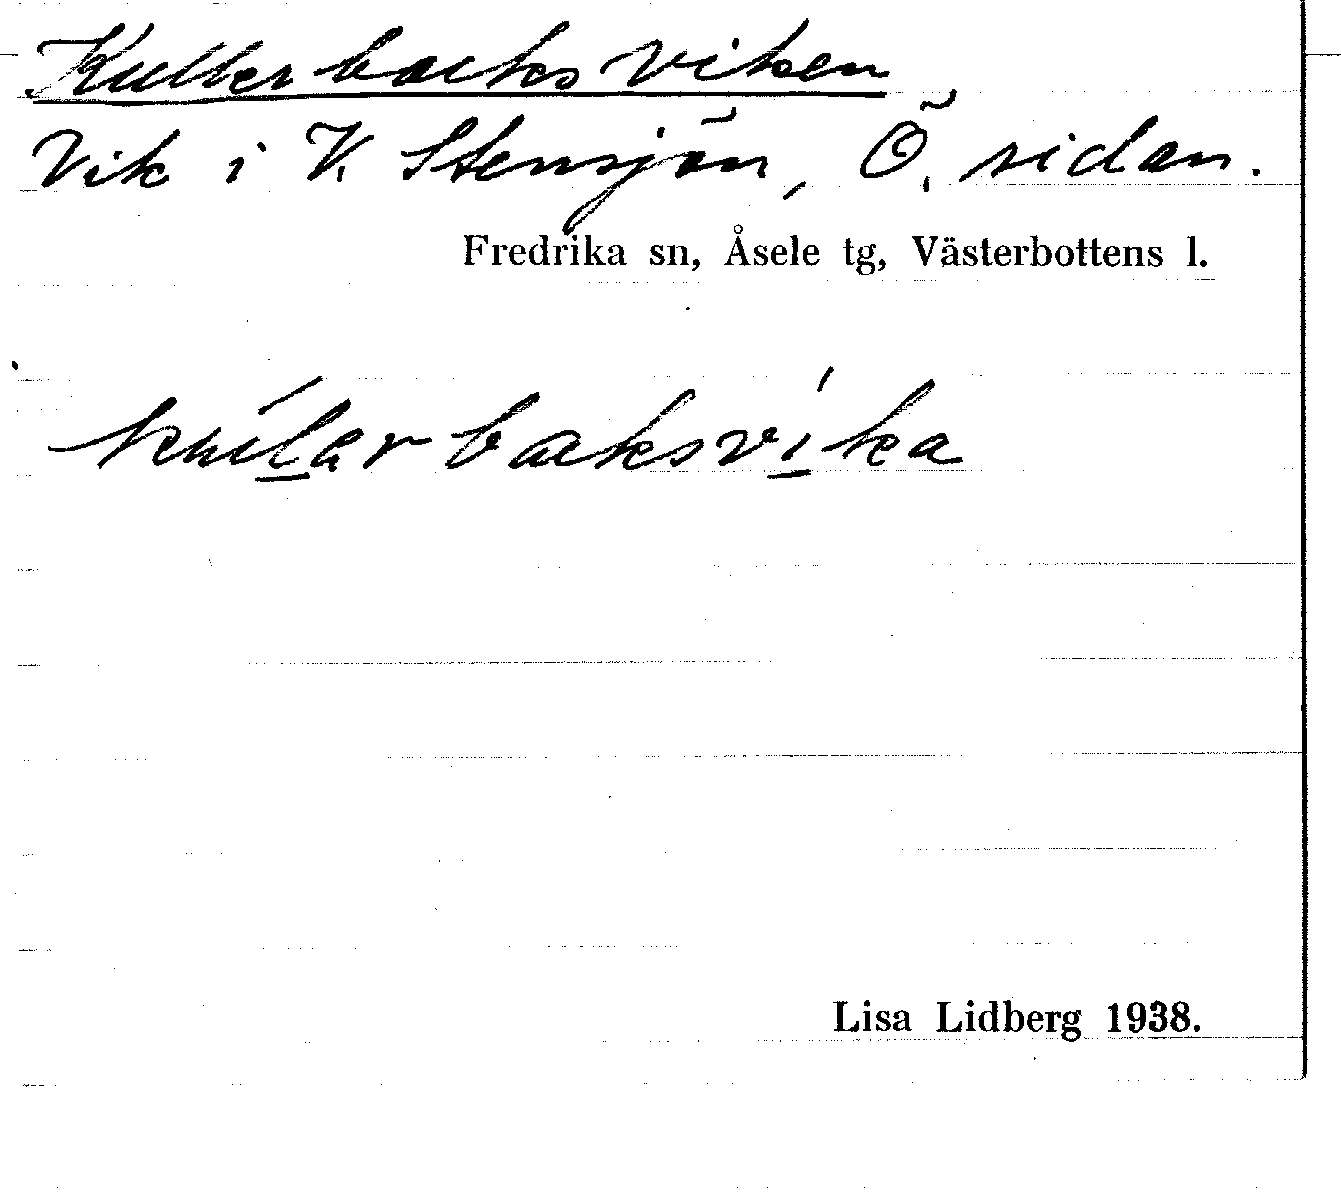 Kullerbacksviken
Vik i V. Stensjön, Ö. sidan.
Fredrika sn, Åsele tg, Västerbottens l.
Lisa Lidberg 1938.